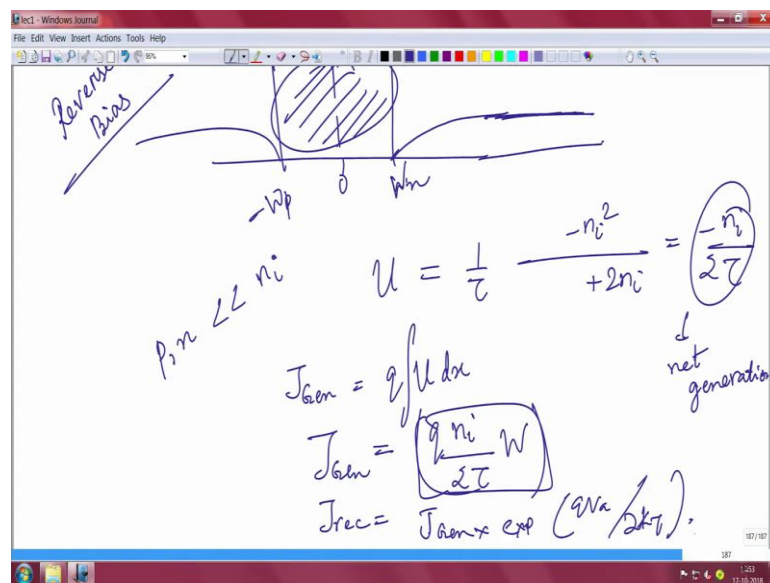 lec1 - Windows Journal
File Edit View Insert Actions Tools Help
96%
B I
Reverse
Bias
-Wp 0 Wn
p, n << ni
U = 1/τ -ni²/+2ni = -ni/2τ
↓
net
generation
JGen = q∫U dx
JGen = q ni/2τ W
Jrec = JGen x exp (qVa/2kT).
187/187
187
12-10-2018